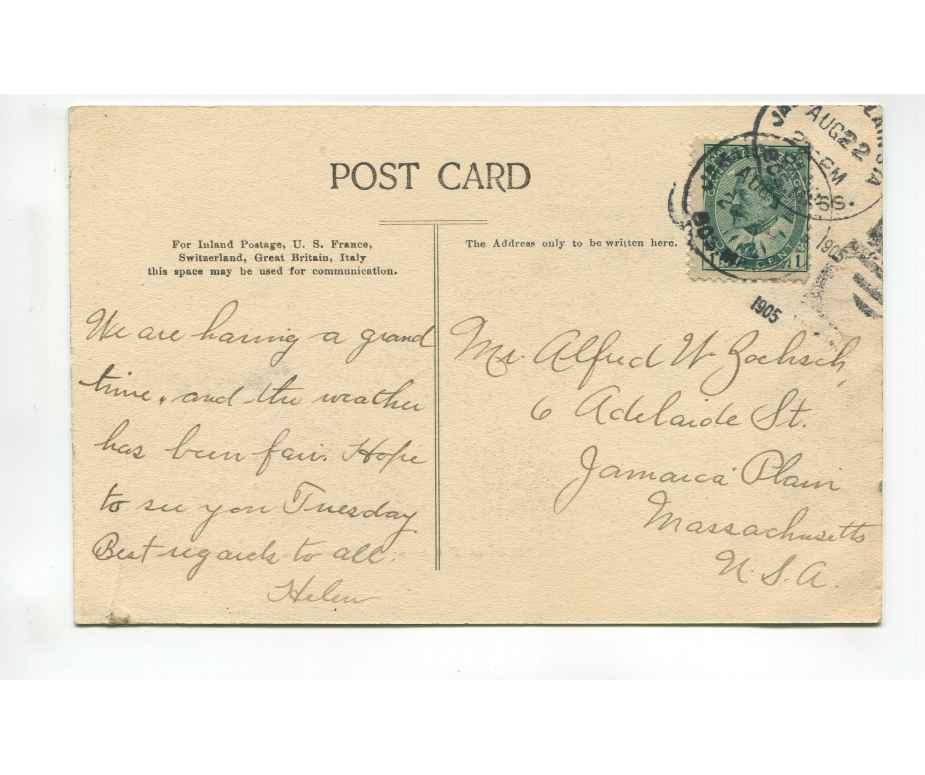 POST CARD
For Inland Postage, U. S. France,
Switzerland, Great Britain, Italy
this space may be used for communication.
The Address only to be written here.
We are having a grand
time, and the weather
has been fair. Hope
to see you Tuesday
Best regards to all.
Helen
Mr. Alfred W Zochsch,
6 Adelaide St.
Jamaica Plain
Massachusetts
U.S.A.
AUG 22
1905
1905